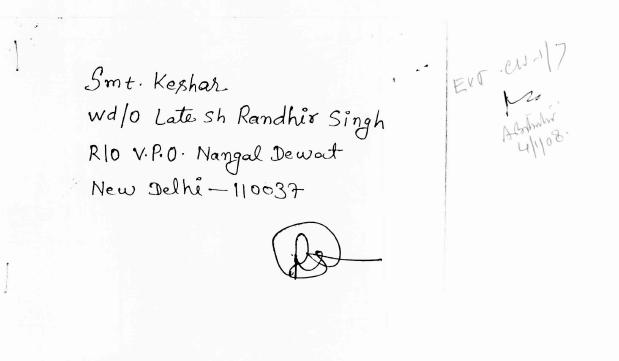 Smt. Keshar
wd/o Late Sh Randhir Singh
R/o V.P.O. Nangal Dewat
New Delhi - 110037
Ext .CW-1/7
4/1/08.